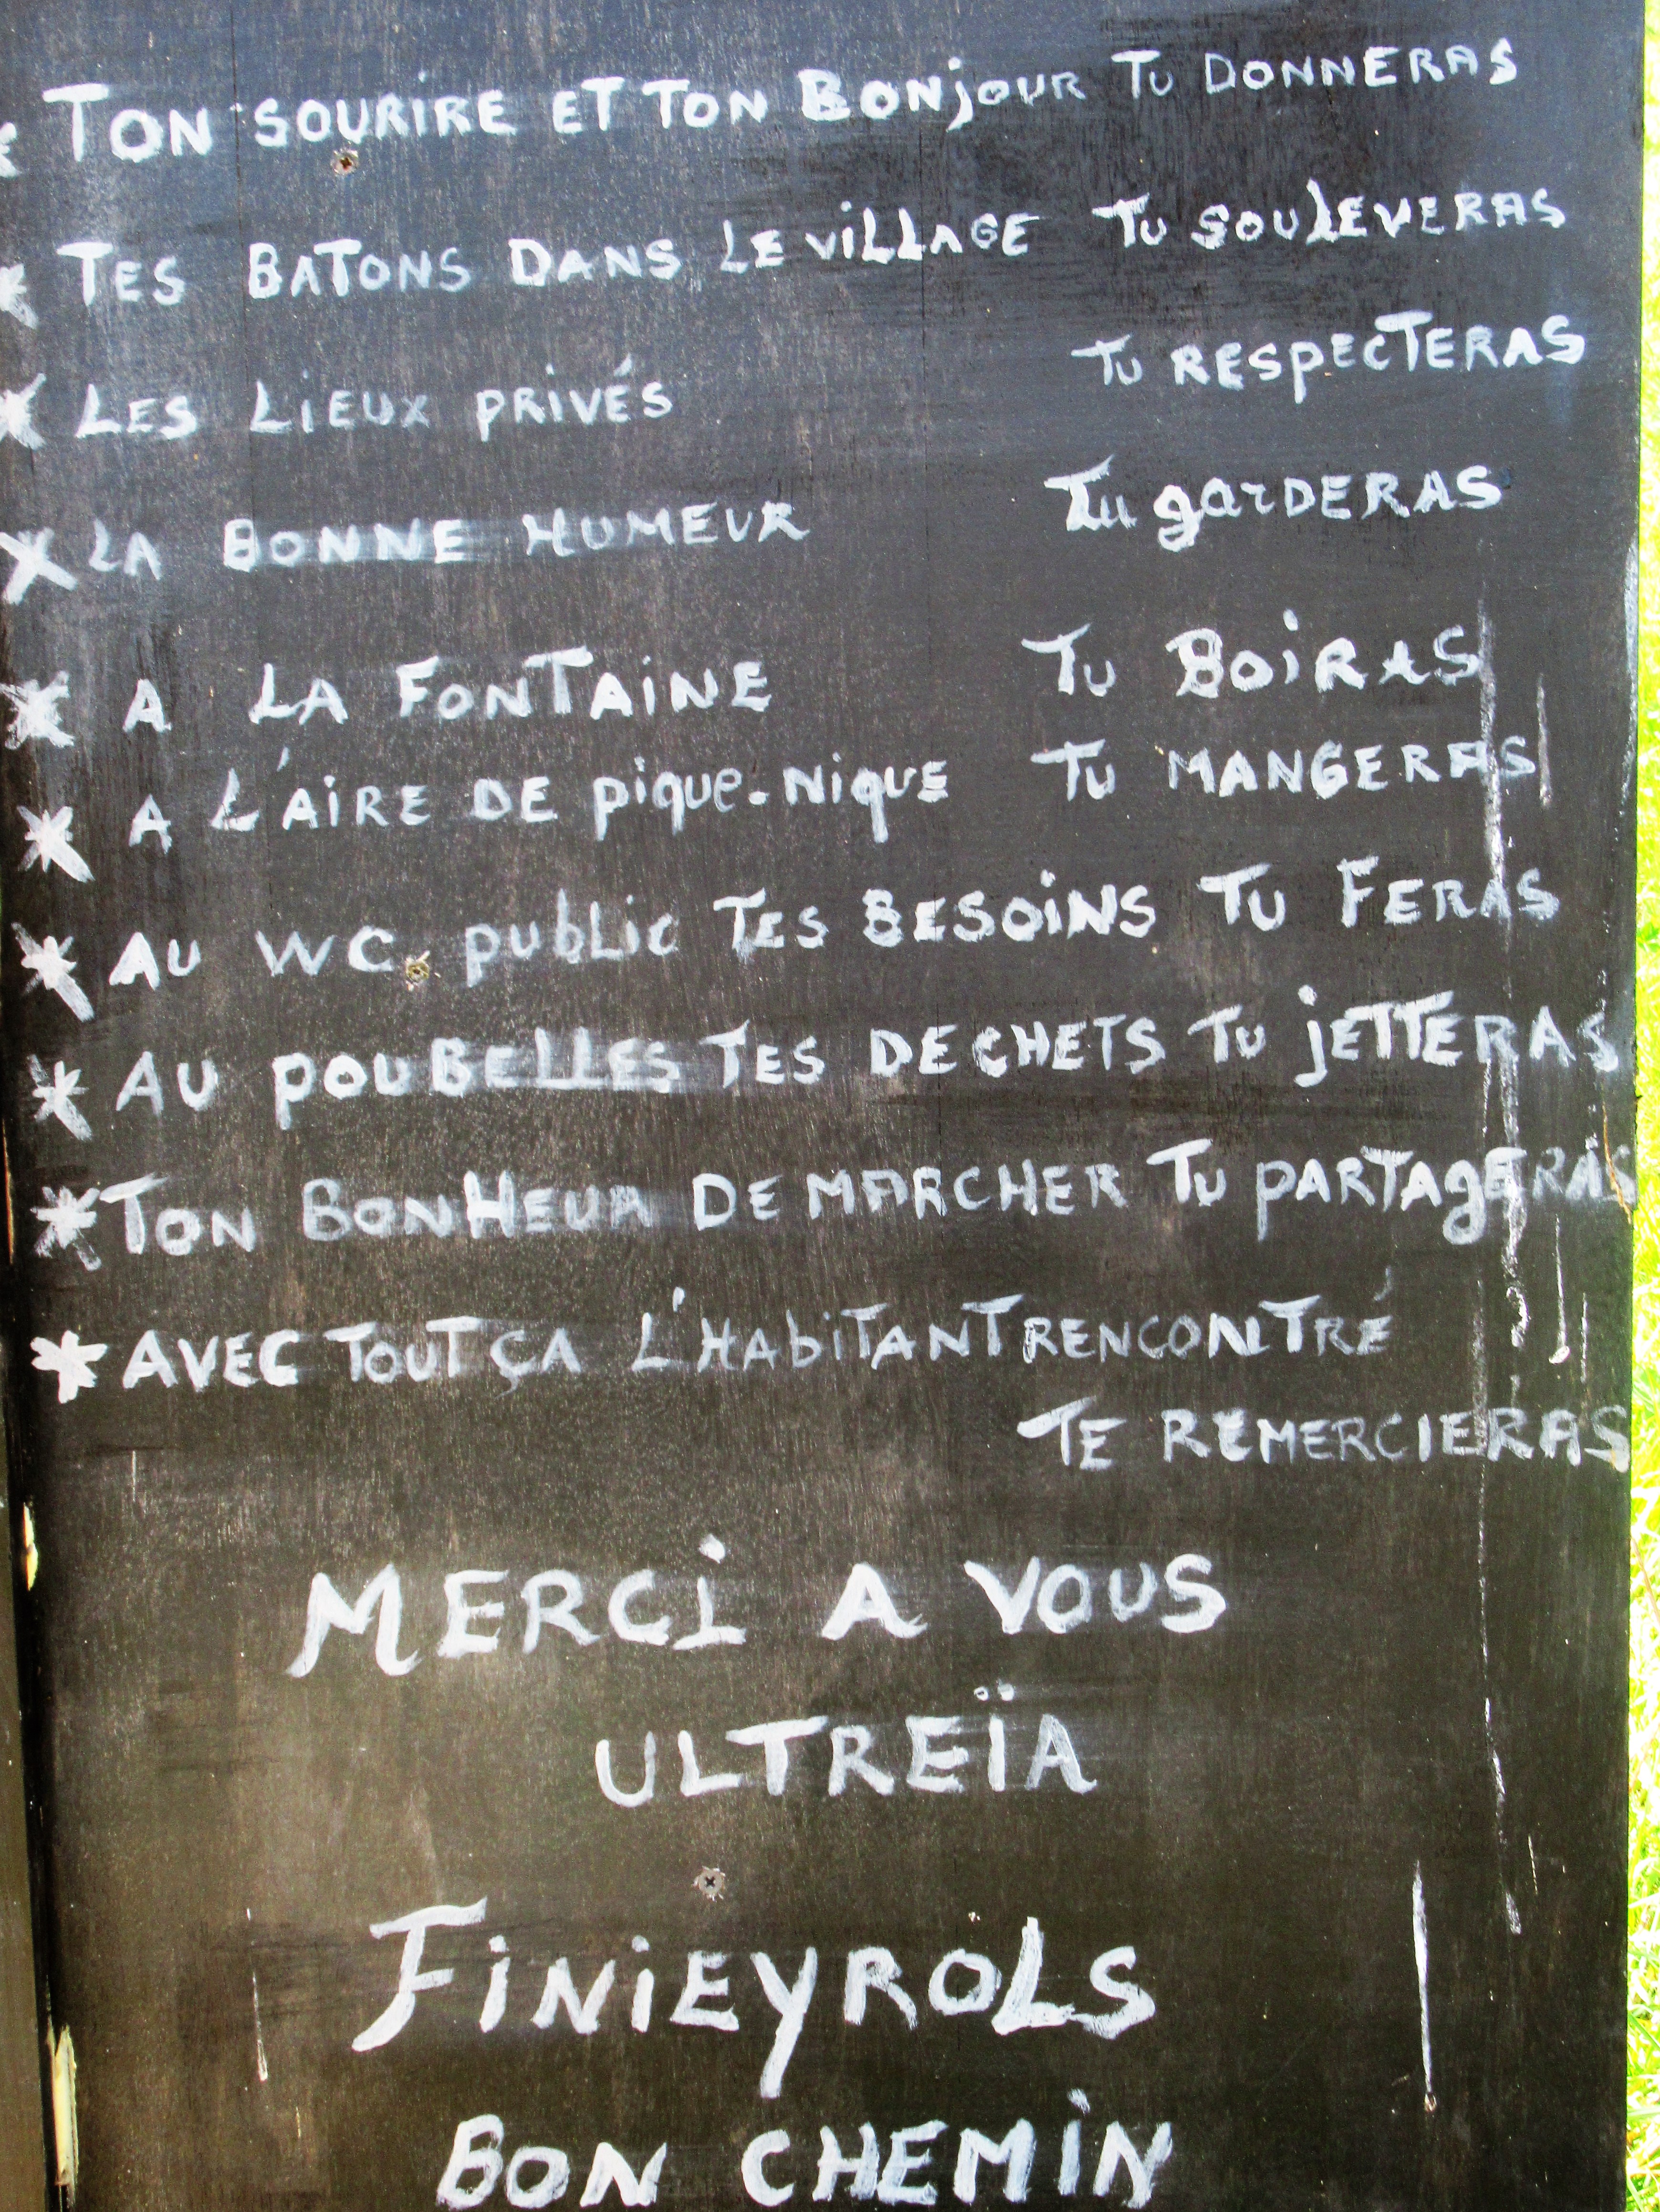 * TON SOURIRE ET TON BONjOUR TU DONNERAS
* TES BATONS DANS LE ViLLAGE TU SOULEVERAS
* LES LiEUX PRiVÉS TU RESPECTERAS
* LA BONNE HUMEUR Tu garDERAS
* A LA FONTAiNE TU BOiRAS
* A L'AiRE DE pique-Nique TU MANGERAS
* AU WC. pubLic TES BESOiNS TU FERAS
* AU POUBELLES TES DECHETS TU jETTERAS
* TON BONHEUR DE MARCHER TU PARTAgERAS
* AVEC TOUT ÇA L'HAbiTANT RENCONTRÉ
TE REMERCIERAS
MERCi A VOUS
ULTREÏA
FiNiEYROLS
BON CHEMiN